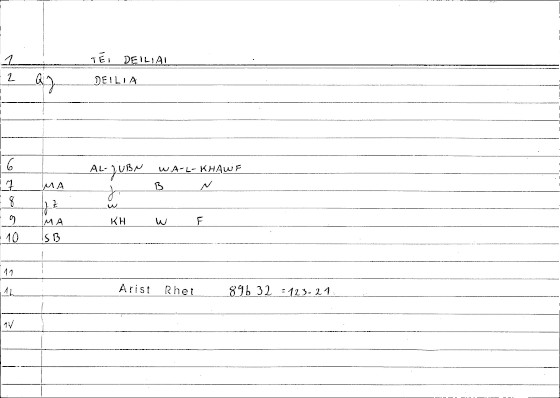 1 TĒI DEILIAI
2 Qj DEILIA
6 AL-JUBN WA-L-KHAWF
7 MA j B N
8 jz w
9 MA KH W F
10 SB
11
12 Arist Rhet 89b 32 =123.21
14